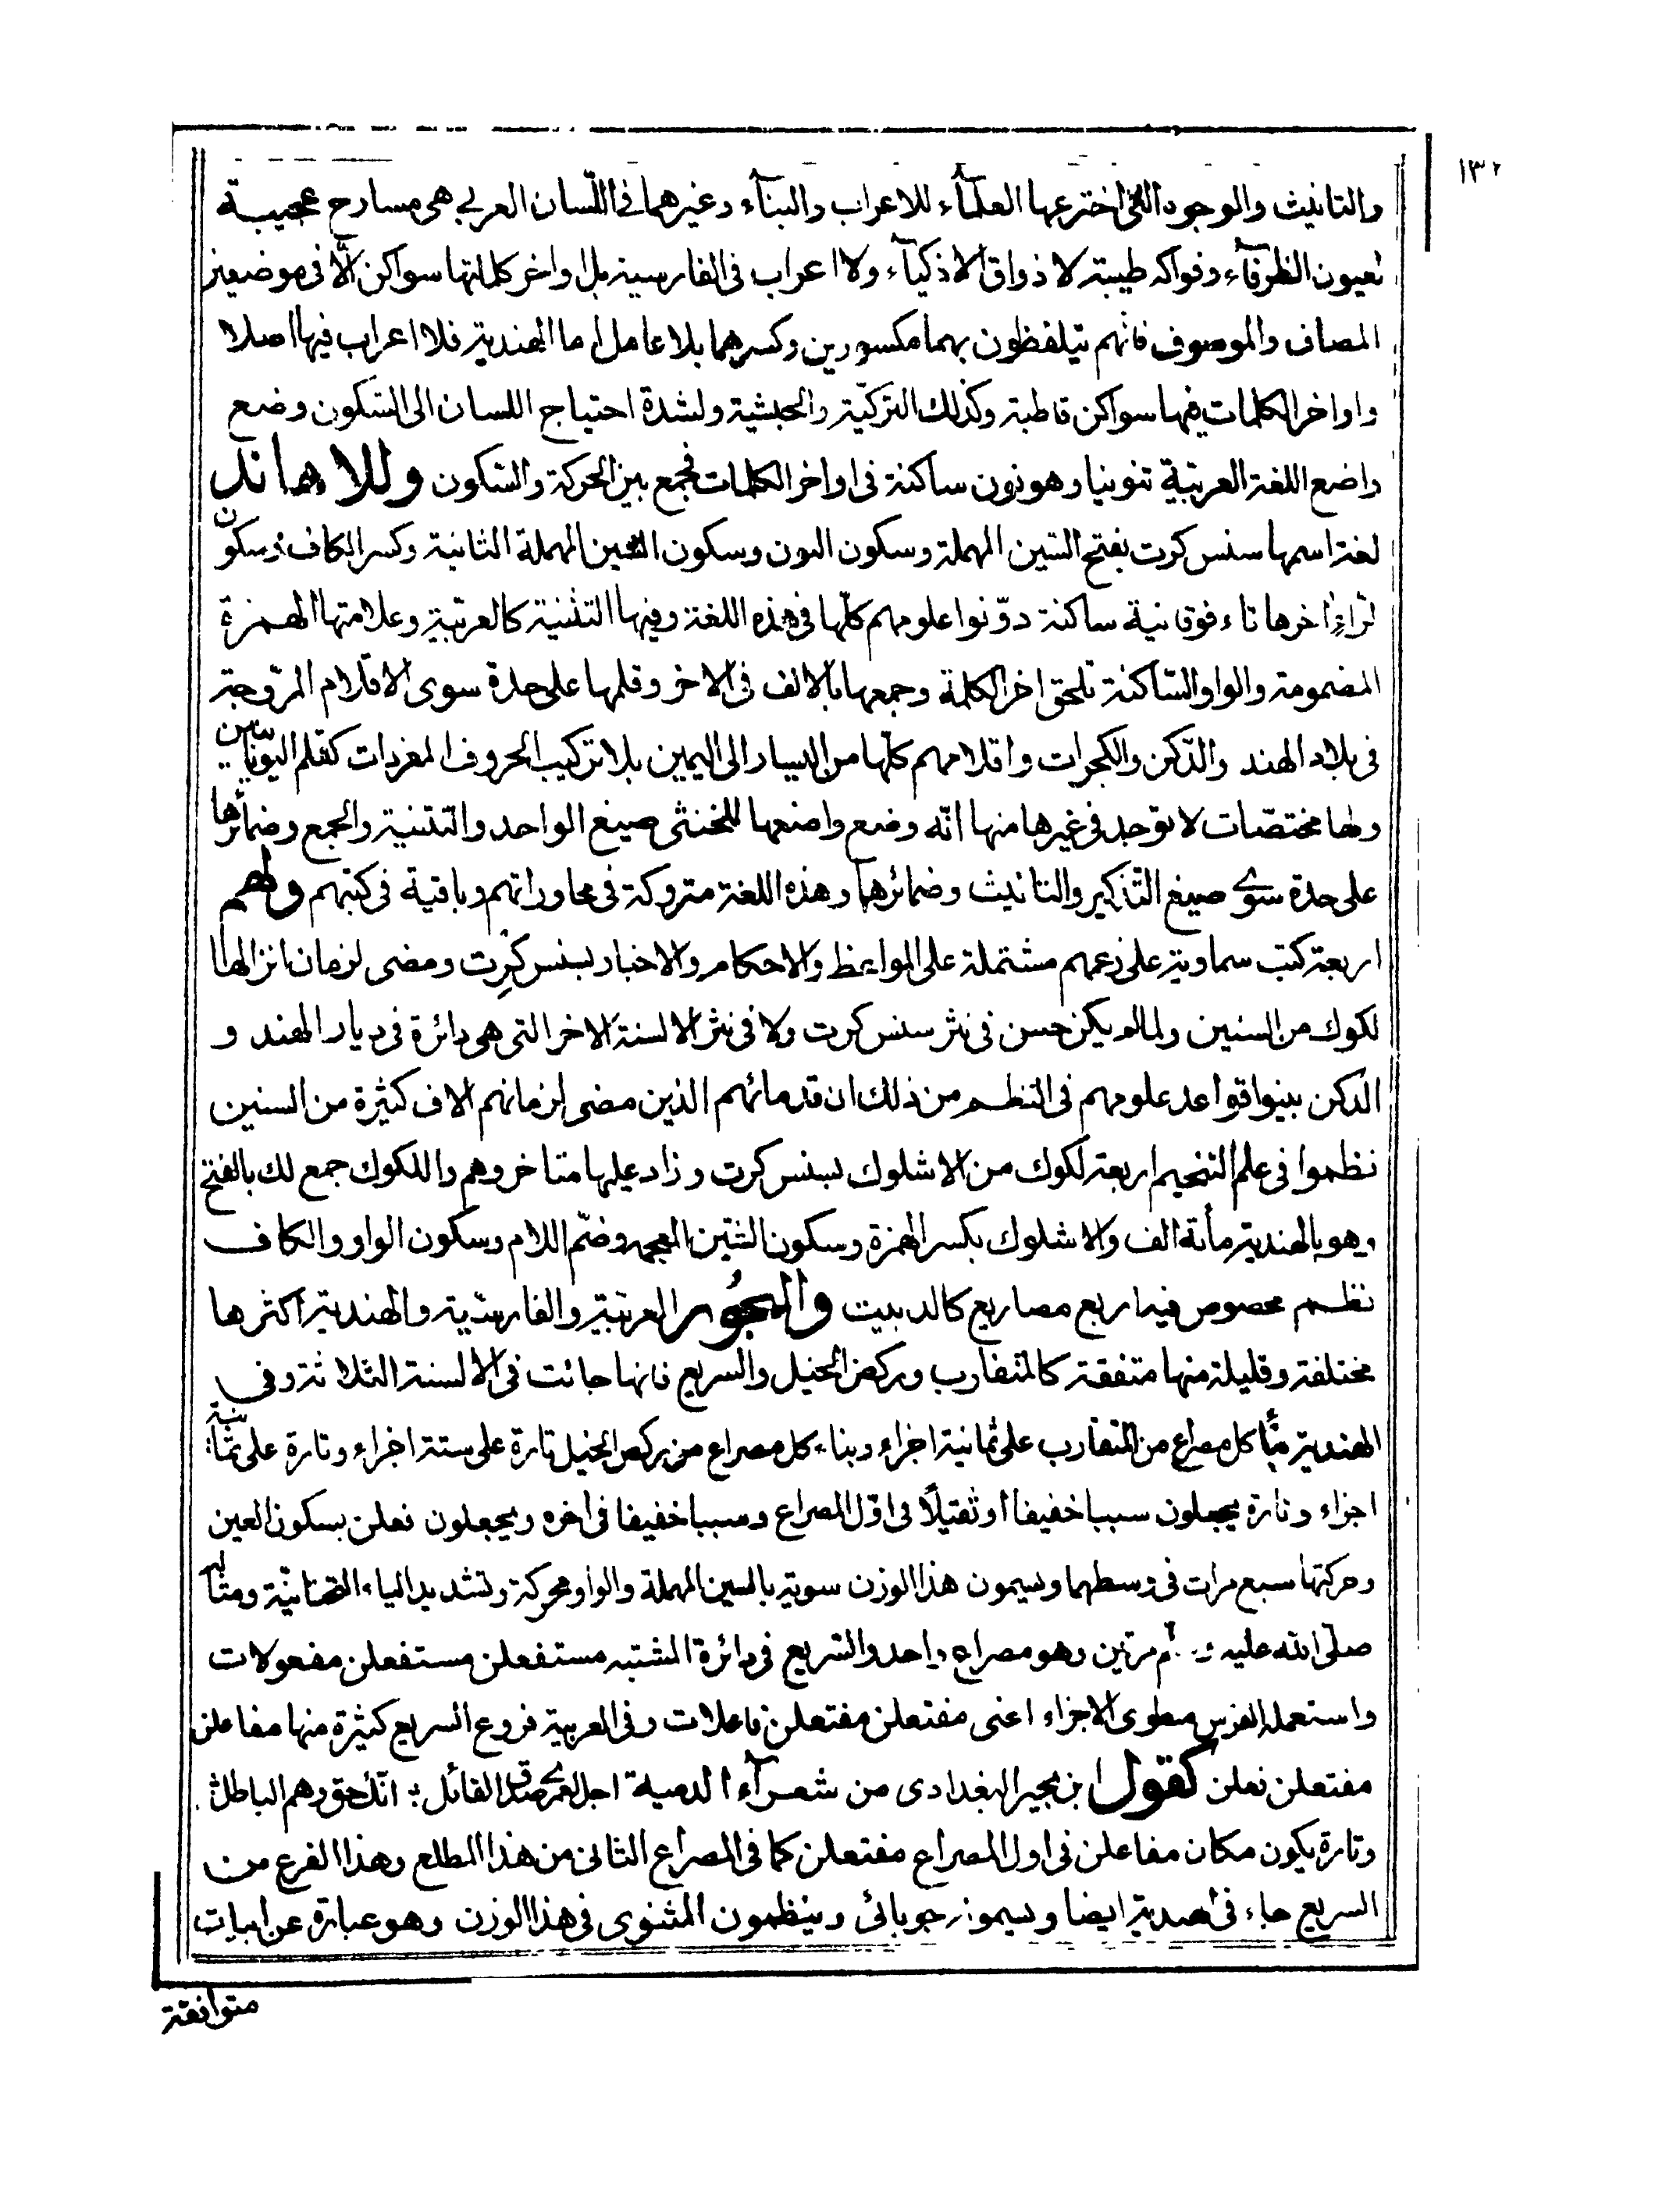 ١٣٢
والتانيث والوجوه التى اخترعها العلمآء للاعراب والبنآء وغيرهما فى اللّسان العربى هى مسارح عجيبة
لعيون الظرفآء وفواكه طيبة لاذواق الاذكيآء ولا اعراب فى الفارسية بل اواخر كلماتها سواكن الّا فى موضعين
المضاف والموصوف فانهم يتلفظون بهما مكسورين وكسرهما بلا عامل اما الهندية فلا اعراب فيها اصلا
واواخر الكلمات فيها سواكن قاطبة وكذلك التركيّة والحبشية ولشدة احتياج اللسان الى السّكون وضع
واضع اللغة العربيّة تنوينا وهو نون ساكنة فى اواخر الكلمات فجمع بين الحركة والسّكون وللاهاند
لغة اسمها سنس كرت بفتح السّين المهملة وسكون النون وسكون السّين المهملة الثانية وكسر الكاف وسكون
الراء اخرها تاء فوقانية ساكنة دوّنوا علومهم كلّها فى هذه اللغة وفيها التثنية كالعربيّة وعلامتها الهمزة
المضمومة والواو السّاكنة تلحق اخر الكلمة وجمعها بالالف فى الاخر وقلمها على حدة سوى الاقلام المروّجة
فى بلاد الهند والدّكن والكجرات واقلامهم كلّها من اليسار الى اليمين بلا تركيب الحروف المفردات كقلم اليونانيّين
ولها مختصّات لا توجد فى غيرها منها انّه وضع واضعها للخنثى صيغ الواحد والتثنية والجمع وضمائرها
على حدة سوى صيغ التّذكير والتانيث وضمائرهما وهذه اللغة متروكة فى محاوراتهم وباقية فى كتبهم ولهم
اربعة كتب سماوية على زعمهم مشتملة على المواعظ والاحكام والاخبار بسنس كرت ومضى لزمان انزالها
لكوك من السنين ولما لم يكن حسن فى نثر سنس كرت ولا فى نثر الالسنة الاخر التى هى دائرة فى ديار الهند و
الدكن بينوا قواعد علومهم فى النظم من ذلك ان قدمائهم الذين مضى لزمانهم الاف كثيرة من السنين
نظموا فى علم التنجيم اربعة لكوك من الاشلوك بسنس كرت وزاد عليها متاخروهم واللكوك جمع لك بالفتح
وهو بالهندية مأئة الف والاشلوك بكسر الهمزة وسكون الشّين المعجمة وضمّ اللام وسكون الواو والكاف
نظم مخصوص فيه اربع مصاريع كالدبيت والبحُور العربيّة والفارسيّة والهندية اكثرها
مختلفة وقليلة منها متفقة كالمتقارب وركض الخيل والسريع فانها جائت فى الالسنة الثلاثة وفى
الهندية بنأ كل مصراع من المتقارب على ثمانية اجزاء وبناء كل مصراع من ركض الخيل تارة على ستة اجزاء وتارة على ثمانية
اجزاء وتارة يجعلون سببا خفيفا او ثقيلًا فى اوّل المصراع وسببا خفيفا فى اخره ويجعلون فعلن بسكون العين
وحركتها سبع مرات فى وسطهما ويسمون هذا الوزن سوية بالسين المهملة والواو محركة وتشديد الياء التحتانيّة ومثاله
صلى الله عليه وسلم مرتين وهو مصراع واحد والسّريع فى دائرة المشتبه مستفعلن مستفعلن مفعولات
واستعمله الفرس مطوى الاجزاء اعنى مفتعلن مفتعلن فاعلات وفى العربية فروع السريع كثيرة منها مفاعلن
مفتعلن فعلن كقول ابن مجير البغدادى من شعرآء الدمية اجل لعمرى صدق القائل ؛ انك حق وهم الباطل
وتارة يكون مكان مفاعلن فى اول المصراع مفتعلن كما فى المصراع الثانى من هذا المطلع وهذا الفرع من
السريع جاء فى الهندية ايضا ويسمونه جوبائى وينظمون المثنوى فى هذا الوزن وهو عبارة عن ابيات
متوافقة